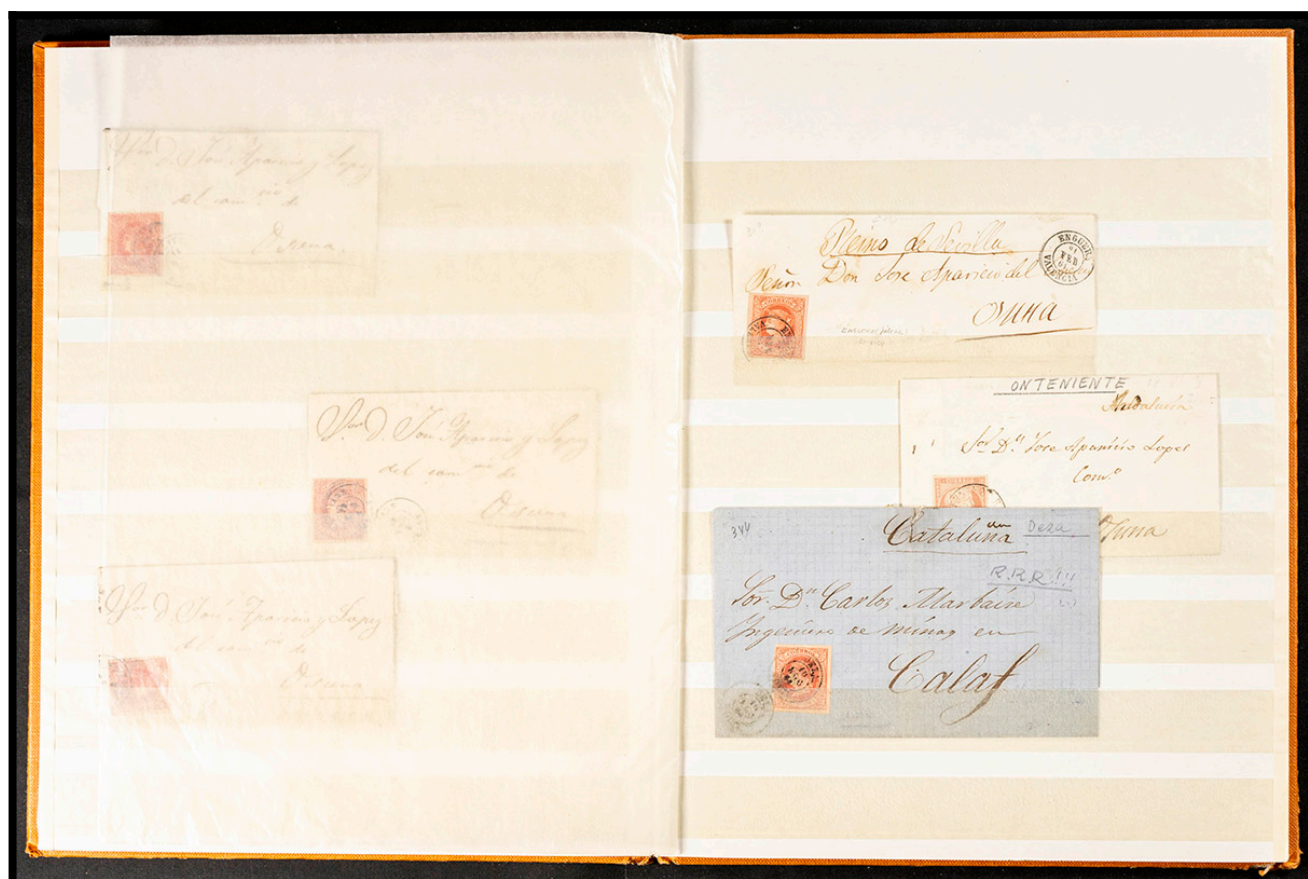 Sor D. José Aparicio y Lopez
del com.cio de
Osuna
Sor D. José Aparicio y Lopez
del com.cio de
Osuna
Sor D. José Aparicio y Lopez
del com.cio de
Osuna
Reino de Sevilla
Señor Don Jose Aparicio del
Osuna
ENGUERA
21
FEB
VALENCIA
ONTENIENTE
Andalucia
Sor Dn Jose Aparicio Lopez
Com.o
Osuna
344
Cataluña
Deza
R.R.R!!!
Sor. Dn Carlos Marbaise
Ingeniero de minas en
Calaf